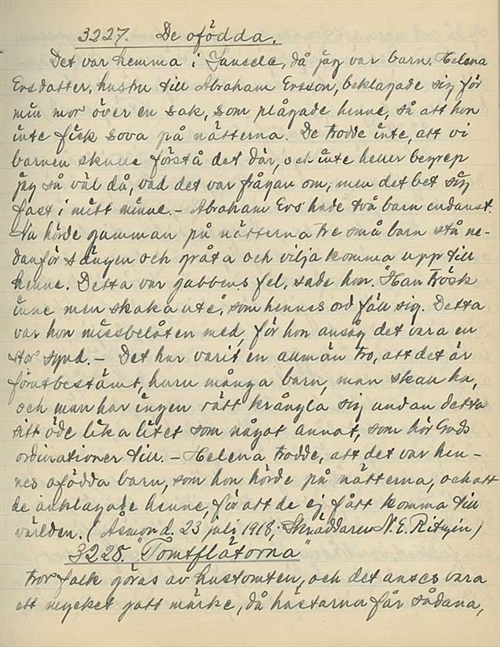 3227. De ofödda.
Det var hemma i Jansele, då jag var barn. Helena
Ersdatter, hustru till Abraham Ersson, beklagade sig för
min mor över en sak, som plågade henne, så att hon
inte fick sova på nätterna. De trodde inte, att vi
barnen skulle förstå det där, och inte heller begrep
jag så väl då, vad det var frågan om, men det bet sig
fast i mitt minne. – Abraham Ers hade två barn endast.
Nu hörde gumman på nätterna tre små barn stå ne-
danför sängen och gråta och vilja komma upp till
henne. Detta var gubbens fel, sade hon. "Han trösk
inne men skaka ute", som hennes ord föll sig. Detta
var hon missbelåten med, för hon ansåg det vara en
stor synd. – Det har varit en allmän tro, att det är
förutbestämt, huru många barn, man skall ha,
och man har ingen rätt krångla sig undan detta
sitt öde lika litet som något annat, som hör Guds
ordinationer till. – Helena trodde, att det var hen-
nes ofödda barn, som hon hörde på nätterna, och att
de anklagade henne, för att de ej fått komma till
världen. (Åsmon d. 23 juli 1918, Skräddaren N. E.)
3228. Tomtflätorna
tror folk göras av hustomten, och det anses vara
ett mycket gott märke, då hästarna får sådana,